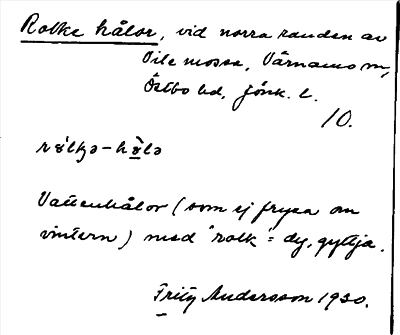 Rolke hålor, vid norra randen av
Vile mosse, Värnamo sn,
Östbo hd, Jönk. l.
10.
Vattenhålor (som ej frysa om
vintern) med "rolk" = dy, gyttja.
Fritz Andersson 1930.